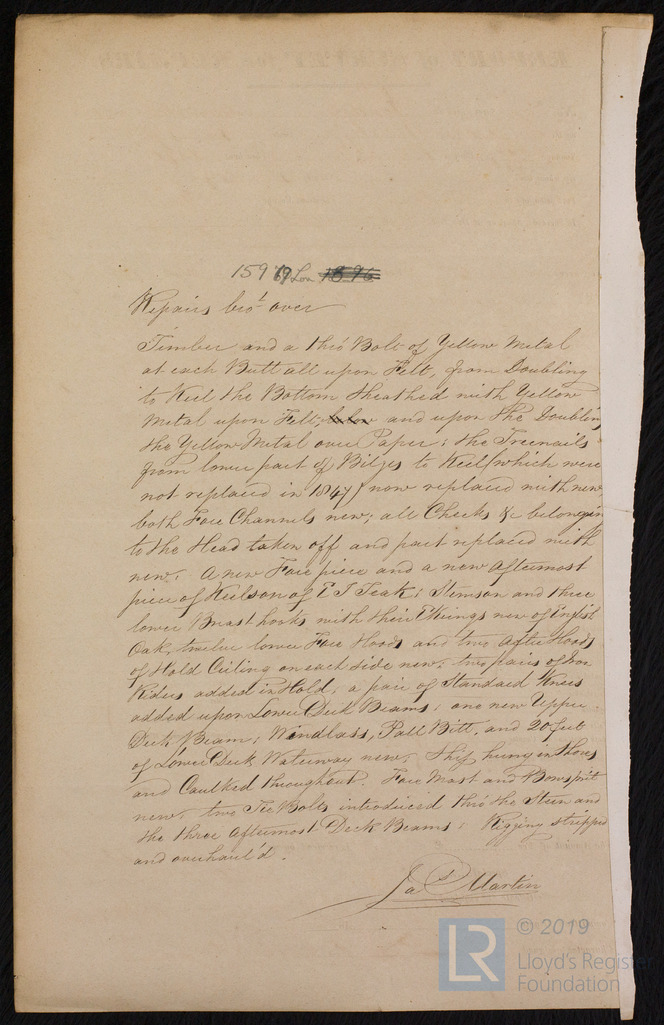 159 69 Lon
Repairs bro^t over
Timber and a thro' Bolt of Yellow Metal
at each Butt all upon Felt, from Doubling
to Keel the Bottom sheathed with Yellow
Metal upon Felt, and upon the Doubling
the Yellow Metal over Paper; the Treenails
from lower part of Bilges to Keel (which were
not replaced in 1847) now replaced with new,
both Fore Channels new; all Cheeks &c belonging
to the Head taken off and part replaced with
new. A new Fore piece and a new aftermost
piece of Keelson of E I Teak; Stemson and three
lower Breasthooks with their Ekeings new of English
Oak, twelve lower Fore Hoods and two after Hoods
of Hold Ceiling on each side new; two pairs of Iron
Riders added in Hold; a pair of Standard Knees
added upon Lower Deck Beams; one new Upper
Deck Beam; Windlass, Pall Bitt, and 20 feet
of Lower Deck Waterway new, Ship hung in Shores
and Caulked throughout. Fore Mast and Bowsprit
new, two Tee Bolts introduced thro' the Stern and
the three aftermost Deck Beams; Rigging stripped
and overhaul'd.
Ja^s Martin
© 2019
LR
Lloyd's Register
Foundation